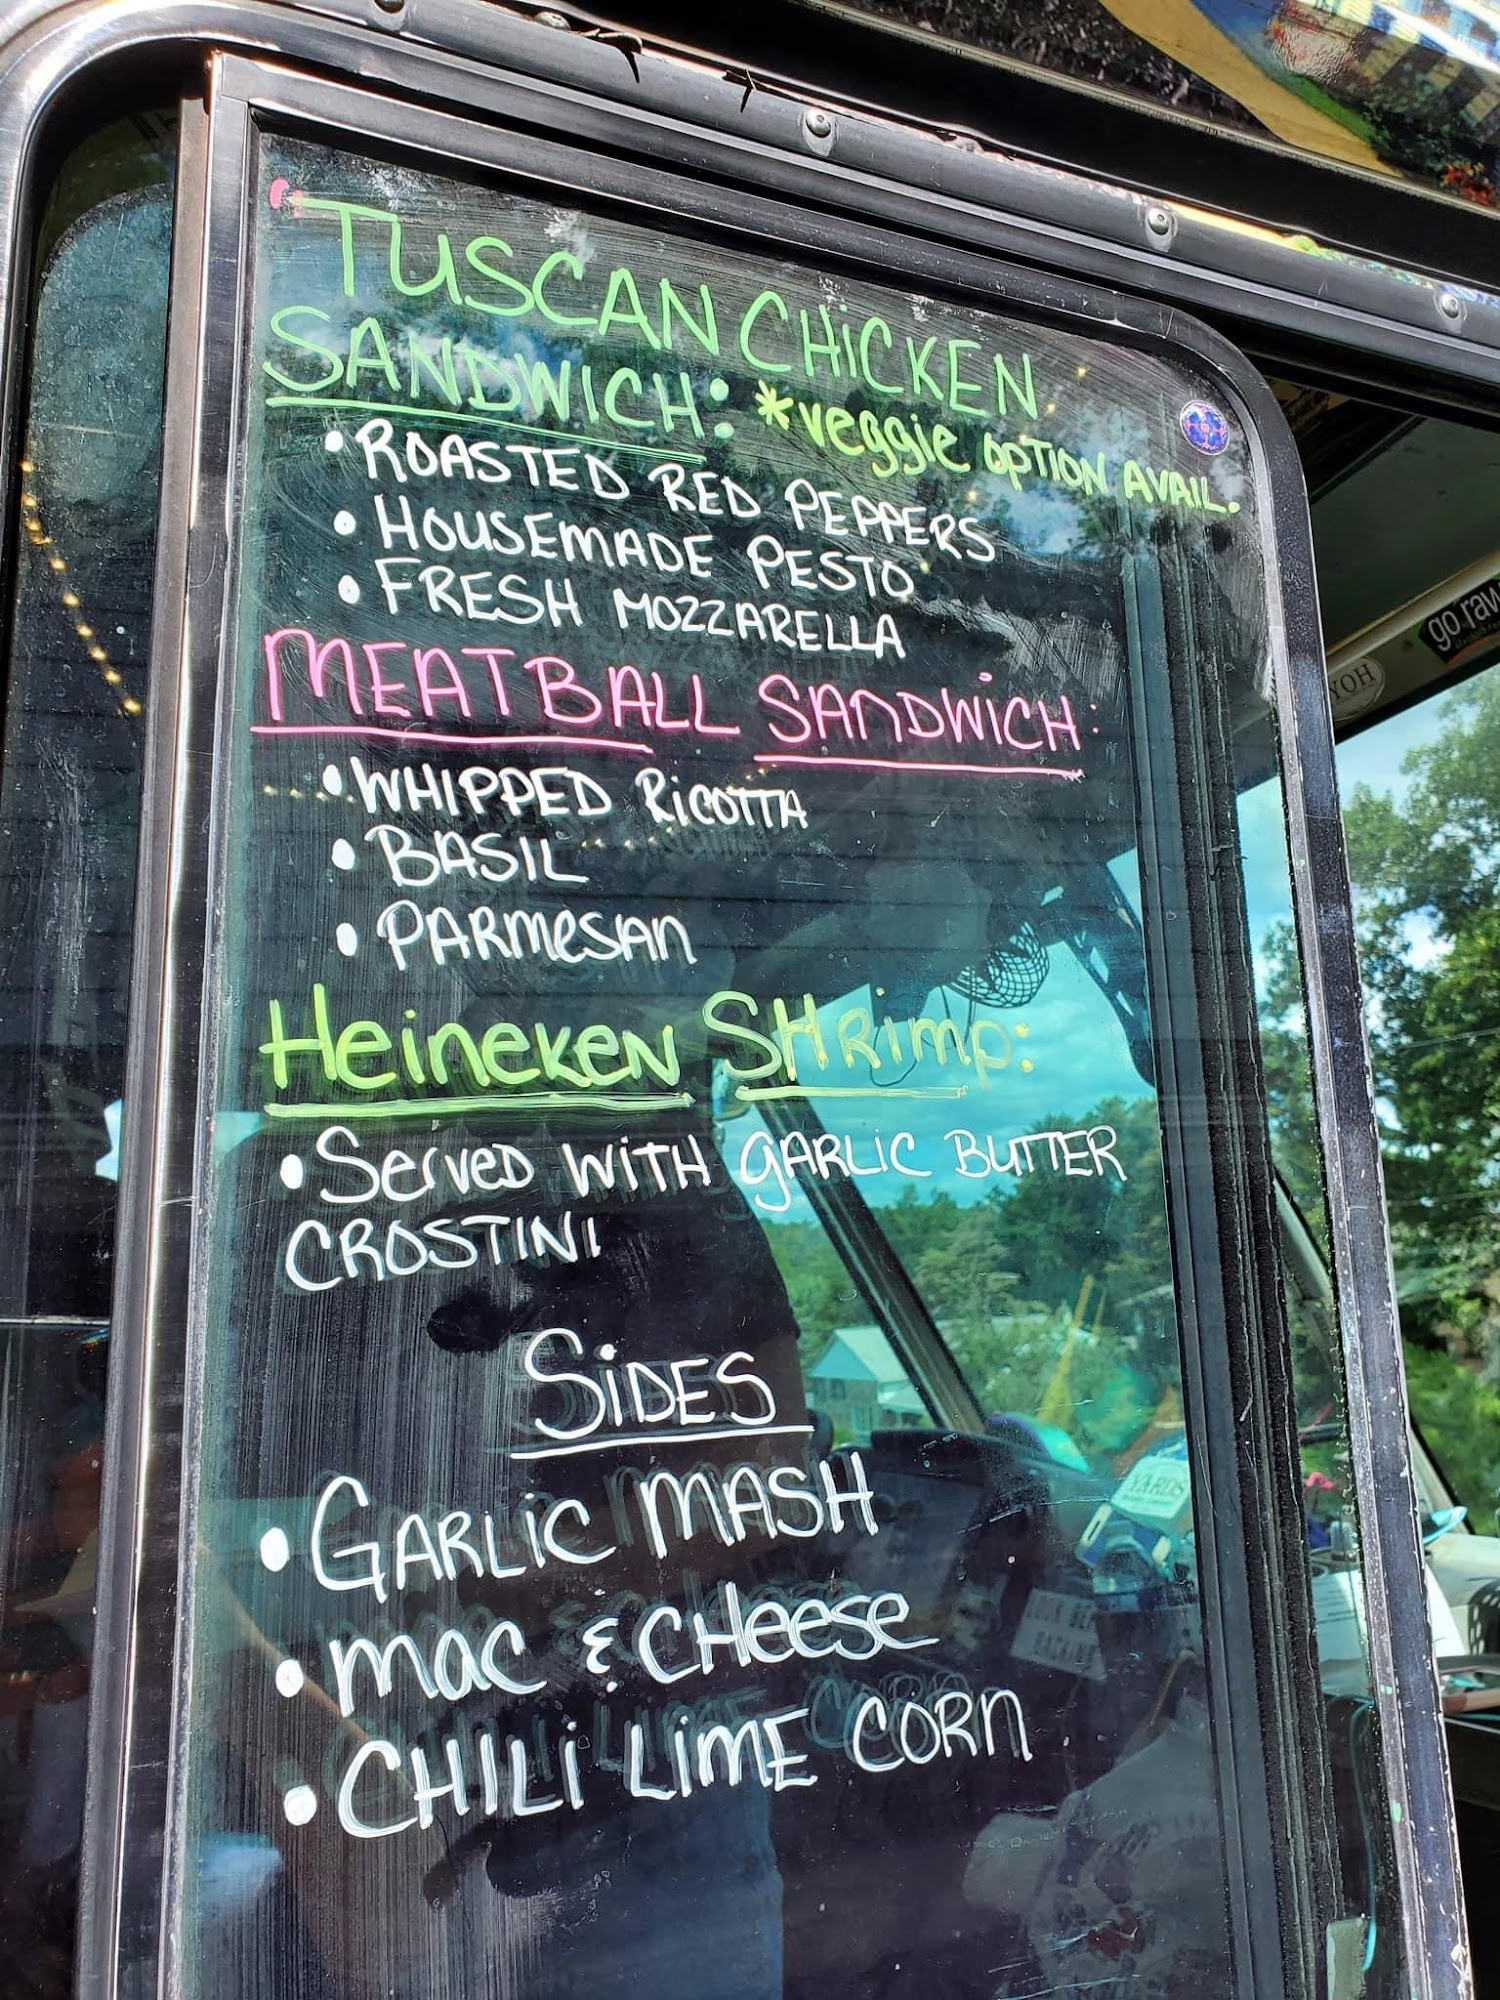 TUSCAN CHICKEN
SANDWICH: *veggie OPTION AVAIL.
• ROASTED RED PEPPERS
• HOUSEMADE PESTO
• FRESH MOZZARELLA
MEATBALL SANDWICH:
• WHIPPED RICOTTA
• BASIL
• PARMESAN
Heineken SHRimp:
• Served WITH GARLIC BUTTER
CROSTINI
SIDES
• GARLIC MASH
• MAC & CHeese
• CHILI LIME CORN
go raw
YOH
YARDS